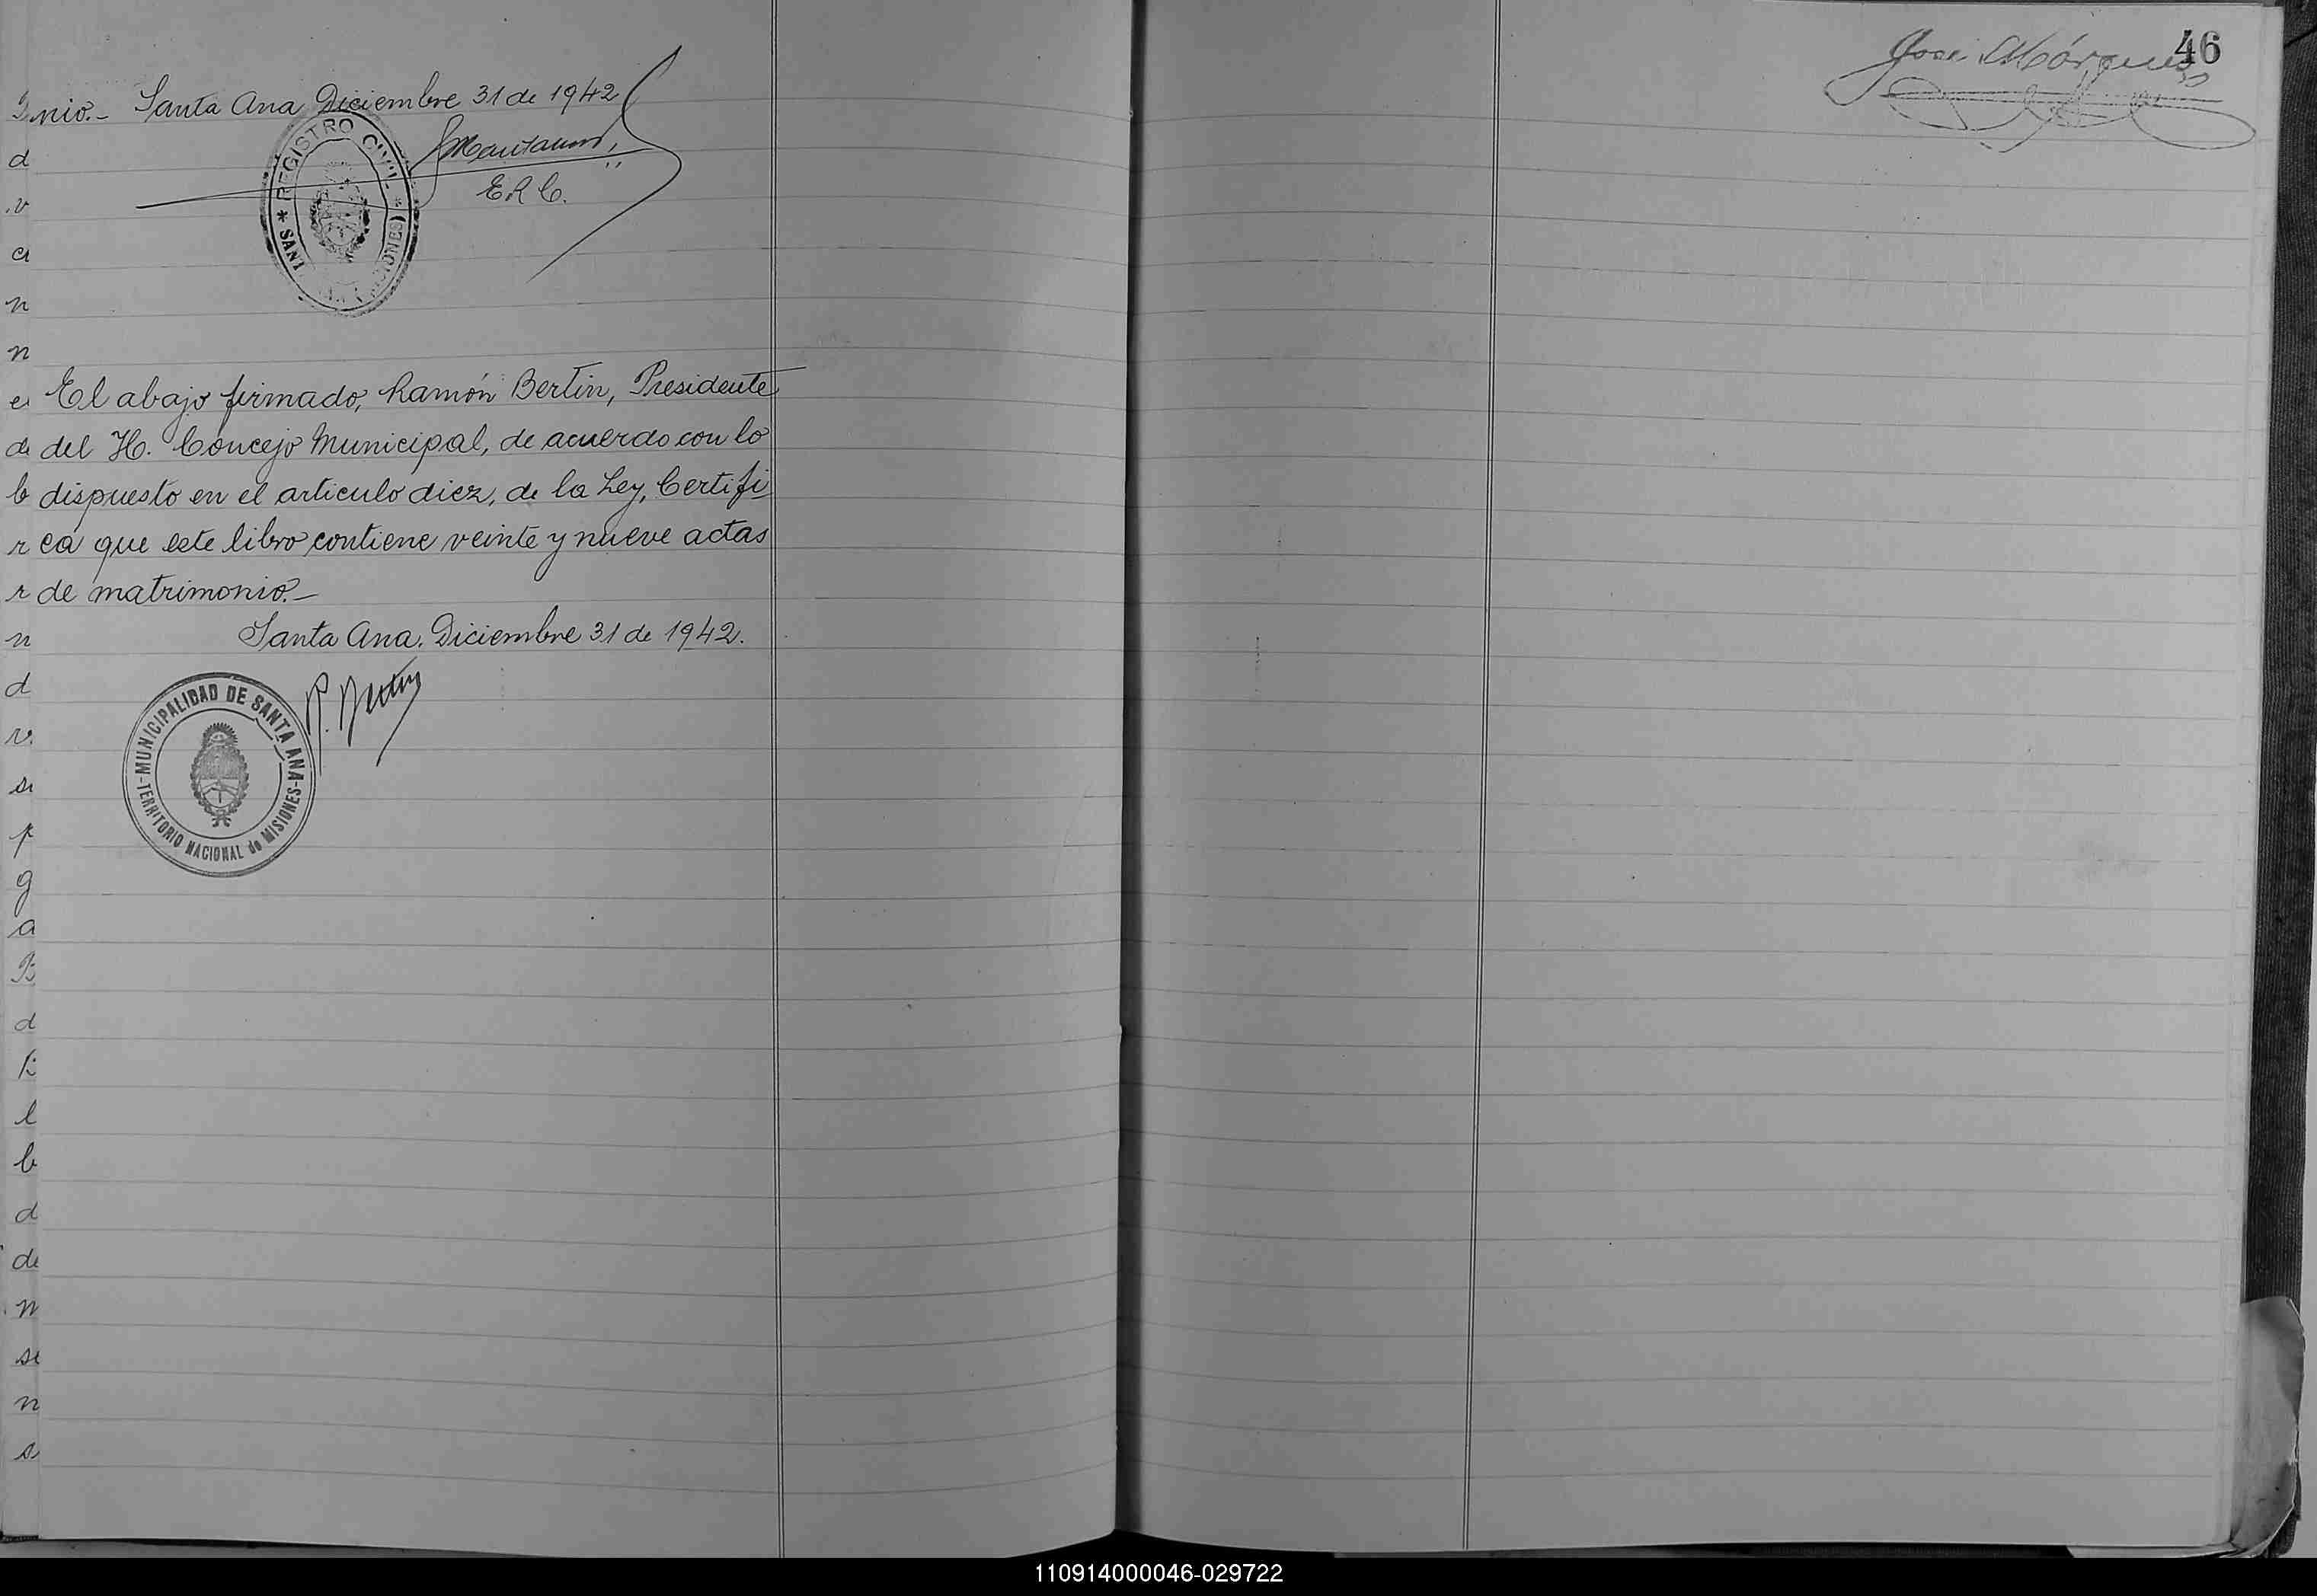 nio.- Santa Ana Diciembre 31 de 1942
E R C.
* REGISTRO CIVIL *
El abajo firmado, Ramón Bertin, Presidente
del H. Concejo Municipal, de acuerdo con lo
dispuesto en el articulo diez, de la Ley, Certifi
ca que este libro contiene veinte y nueve actas
de matrimonio.-
Santa Ana. Diciembre 31 de 1942.
R. Bertin
-MUNICIPALIDAD DE SANTA ANA-
TERRITORIO NACIONAL de MISIONES-
José Márquez
46
110914000046-029722